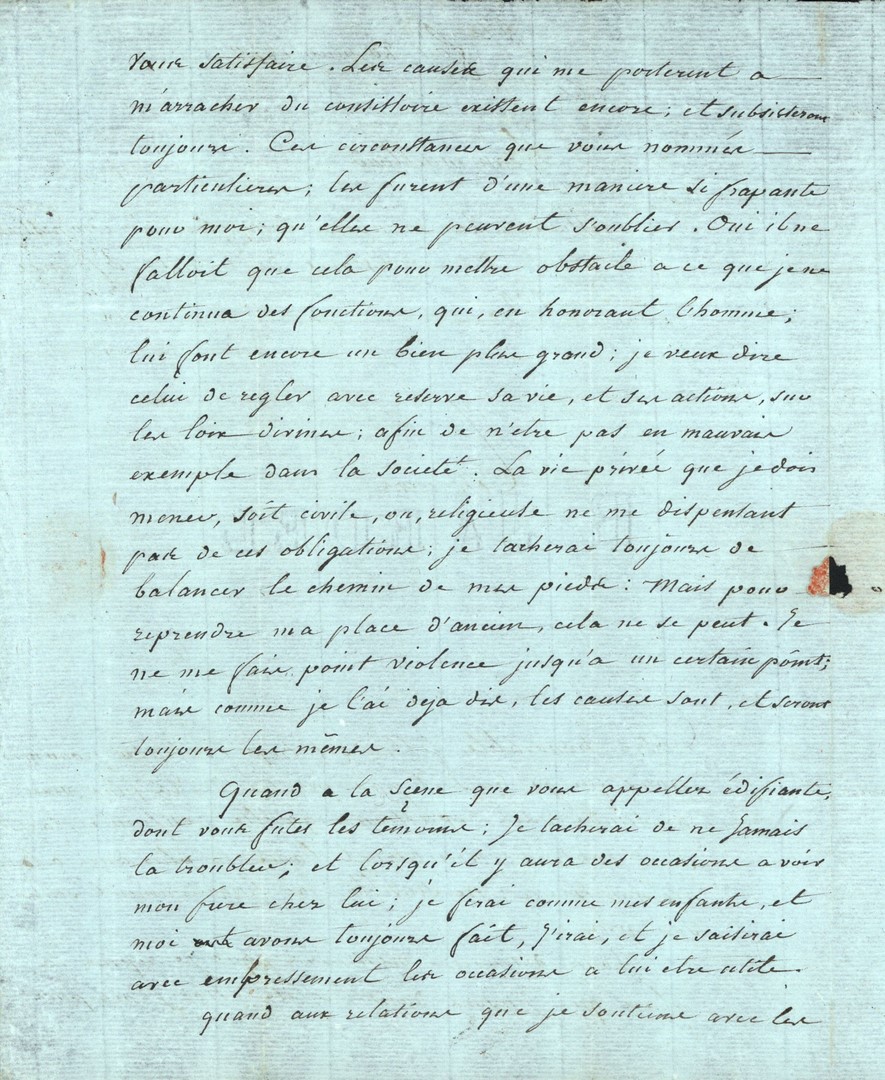 vous satisfaire. Les causes qui me porterent a
m'arracher du consistoire existent encore; et subsisteront
toujours. Ces circonstances que vous nommés
particulieres; les furent d'une maniere si frapante
pour moi; qu'elles ne peuvent s'oublier. Oui il ne
falloit que cela pour mettre obstacle a ce que je ne
continua des fonctions, qui, en honorant l'homme;
lui font encore un bien plus grand; je veux dire
celui de regler avec reserve sa vie, et ses actions, sur
les loix divines; afin de n'etre pas en mauvais
exemple dans la societé. La vie privée que je dois
mener, soit civile, ou, religieuse ne me dispensant
pas de ces obligations; je tacherai toujours de
balancer le chemin de mes pieds: Mais pour
reprendre ma place d'ancien, cela ne se peut. Je
ne me fais point violence jusqu'a un certain point;
mais comme je l'ai deja dis, les causes sont, et seront
toujours les mêmes.
Quand a la scene que vous appellez édifiante,
dont vous futes les temoins; Je tacherai de ne Jamais
la troubler; et lorsqu'il y aura des occasions a voir
mon frere chez lui; je ferai comme mes enfants, et
moi avons toujours fait, J'irai, et je saisirai
avec empressement les occasions a lui etre utile.
quand aux relations que je soutiens avec les